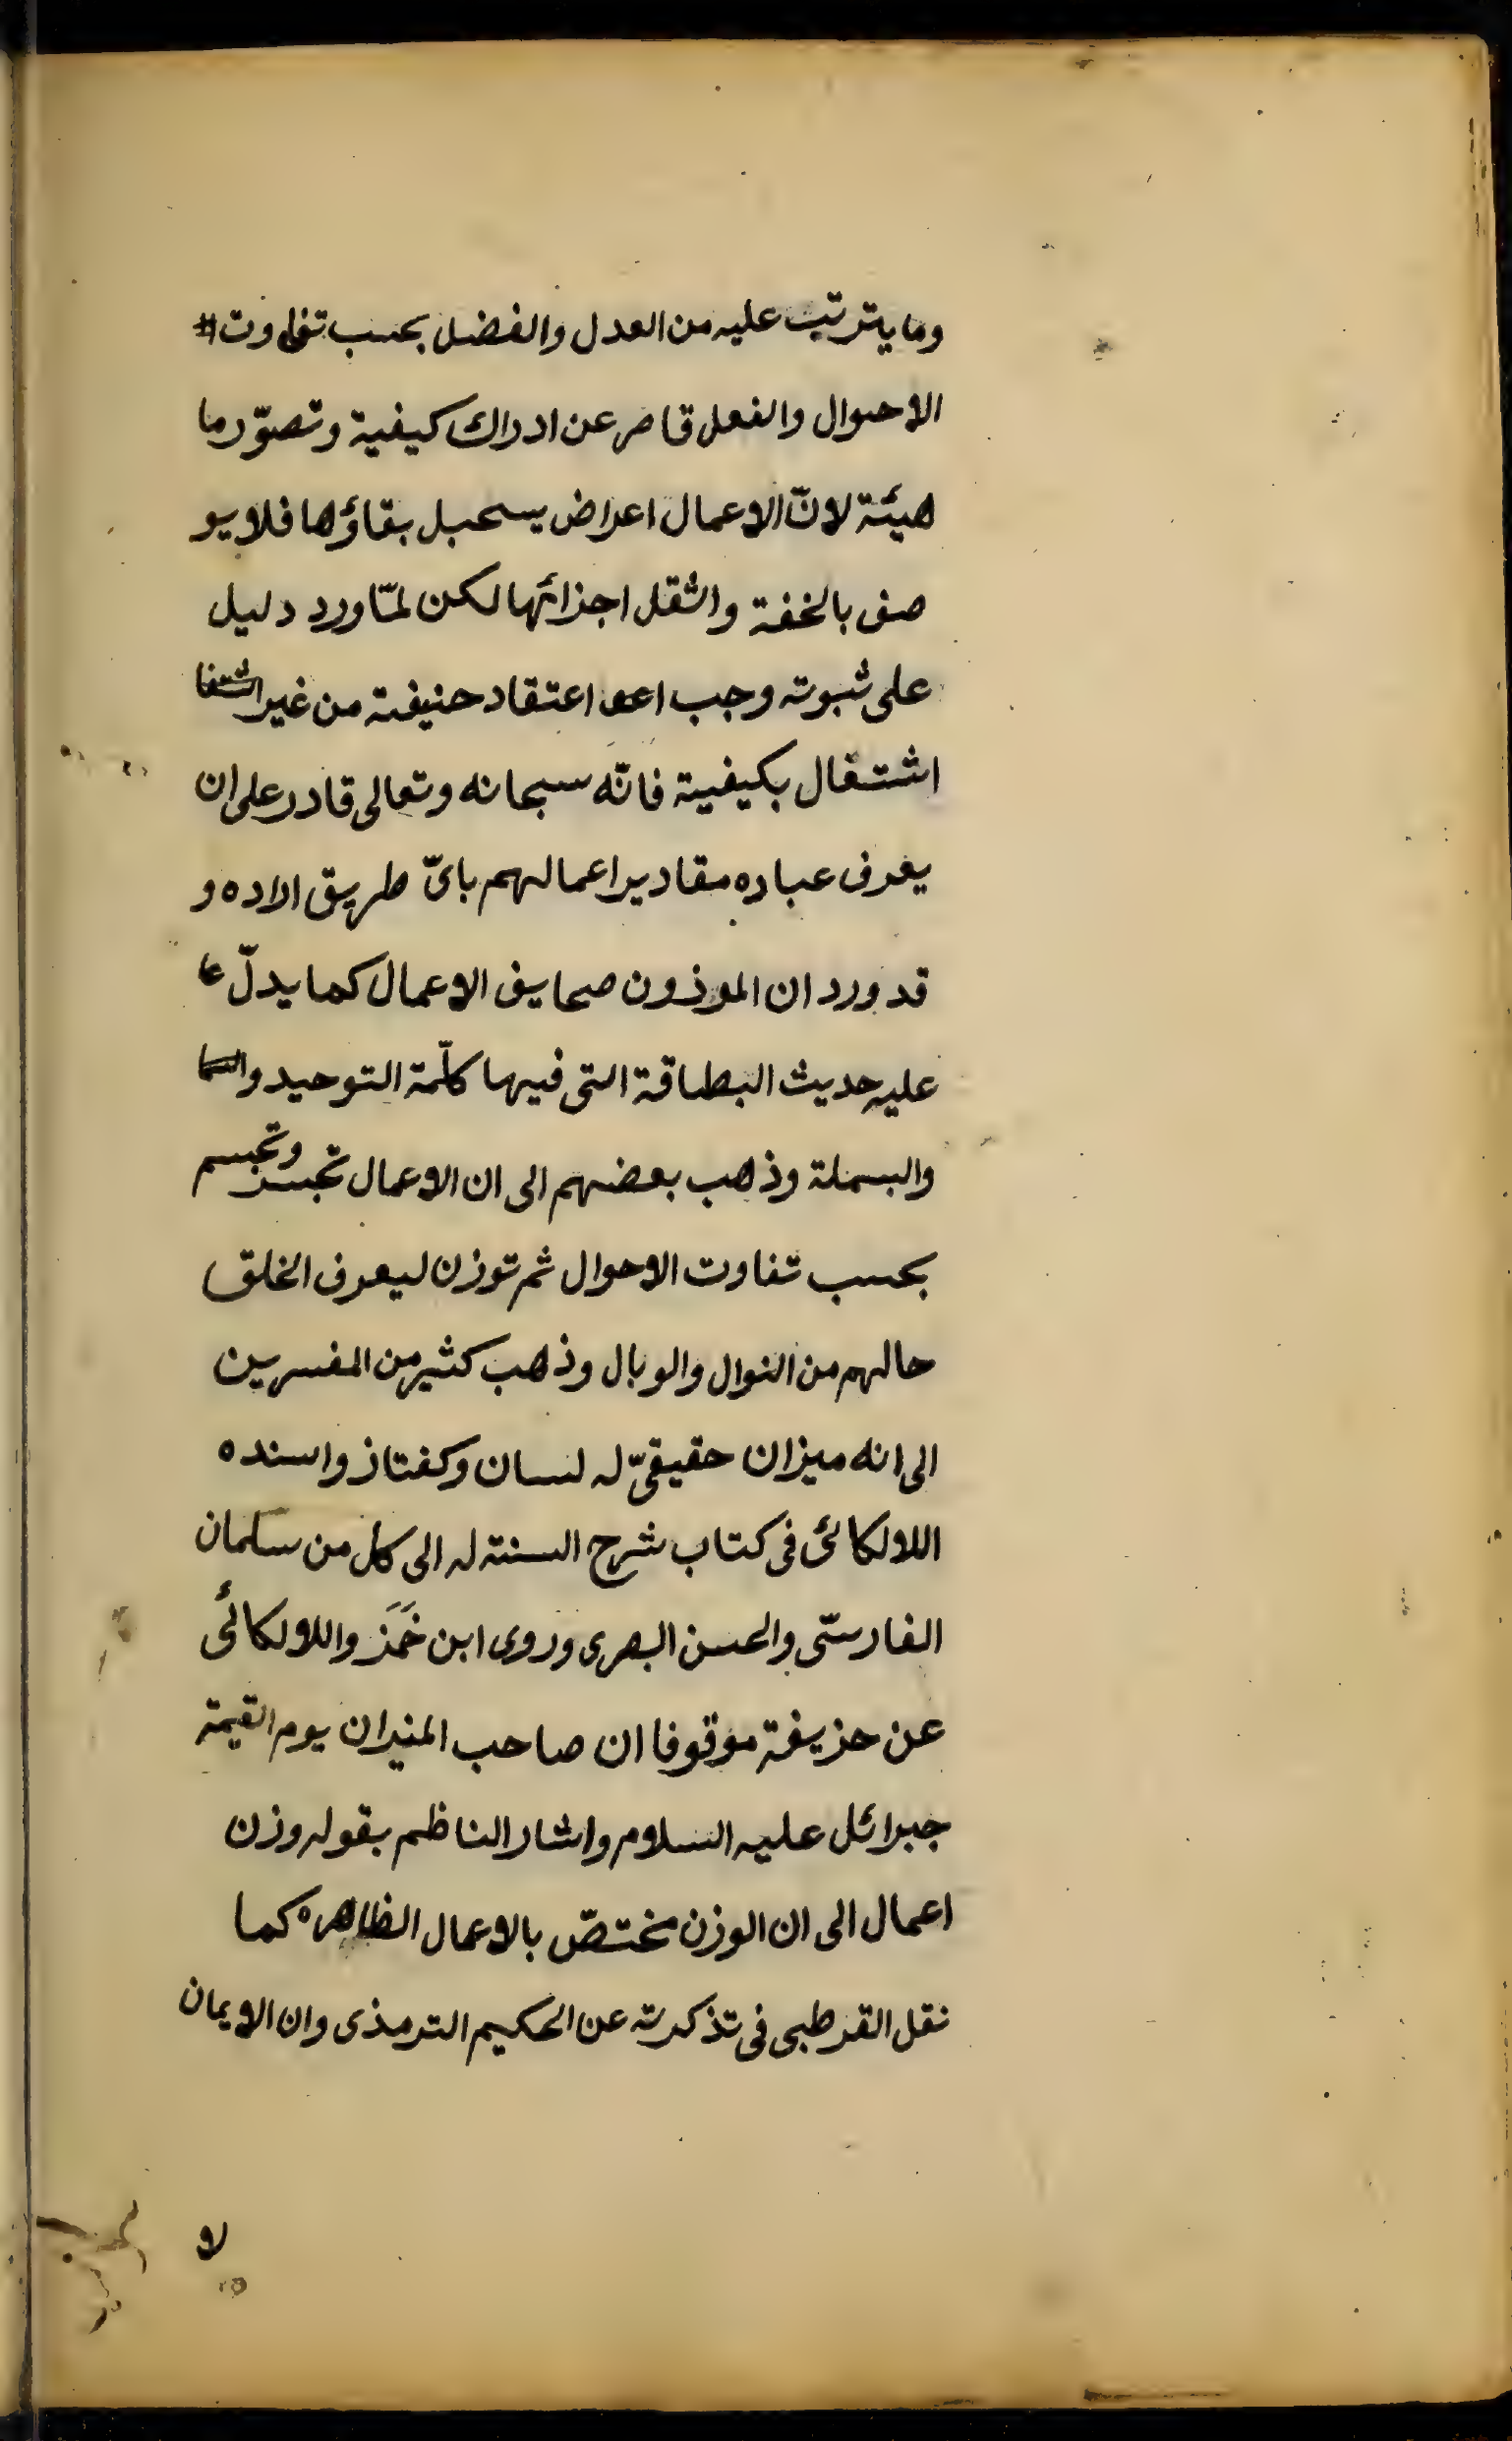 وما يترتب عليه من العدل والفضل بحسب تفاوت
الاحوال والفعل قاصر عن ادراك كيفية وتصوّر ما
هيئة لانّ الاعمال اعراض يستحيل بقاؤها فلا يو
صف بالخفة والثقل اجزائها لكن لمّا ورد دليل
على ثبوته وجب اعو اعتقاد حنيفة من غير اشتغا
اشتغال بكيفية فانّه سبحانه وتعالى قادر على ان
يعرف عباده مقادير اعمالهم باىّ طريق اراده و
قد ورد ان الموزون صحايف الاعمال كما يدلّ ع
عليه حديث البطاقة التى فيها كلّمة التوحيد والسا
والبسملة وذهب بعضهم الى ان الاعمال تجسد وتجسم
بحسب تفاوت الاحوال ثم توزن ليعرف الخلق
حالهم من النوال والوبال وذهب كثير من المفسرين
الى انه ميزان حقيقىّ له لسان وكفتاز واسنده
اللالكائى فى كتاب شرح السنته له الى كل من سلمان
الفارسىّ والحسن البصرى وروى ابن خَمَز واللالكائى
عن حزيفة موقوفا ان صاحب الميزان يوم القيمة
جبرائل عليه السلام واشار الناظم بقوله وزن
اعمال الى ان الوزن مختصّ بالاعمال الظاهره كما
نقل القرطبى فى تذكرته عن الحكيم الترمذى وان الايمان
لا